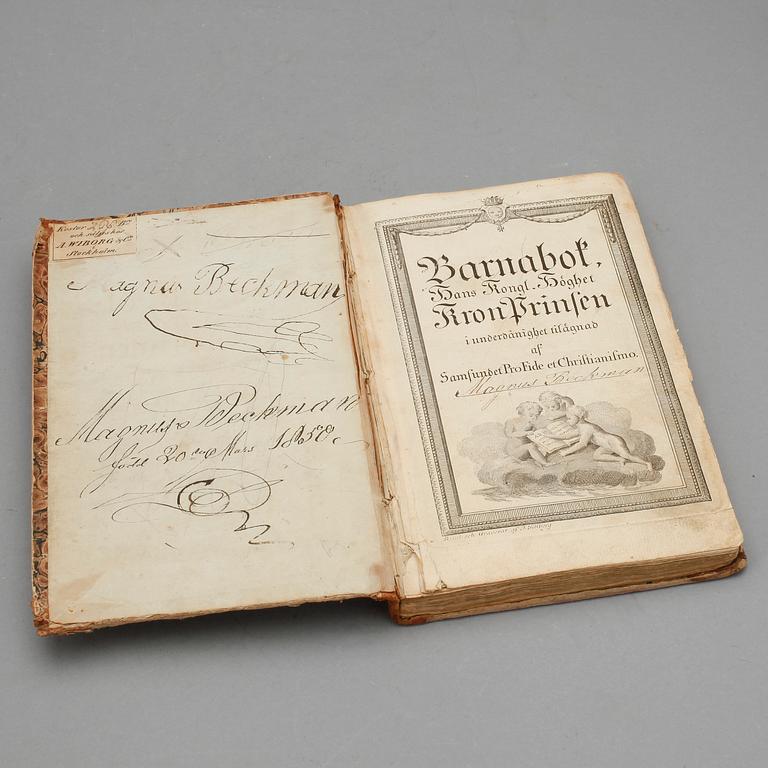 Kostar
och säljes hos
A. WIBORG & C:o
Stockholm.
Magnus Beckman
Magnus Beckman
född 20 Mars 1850
Barnabok,
Hans Kongl. Höghet
Kron Prinsen
i underdånighet tilägnad
af
Samfundet Pro Fide et Christianismo.
Magnus Beckman